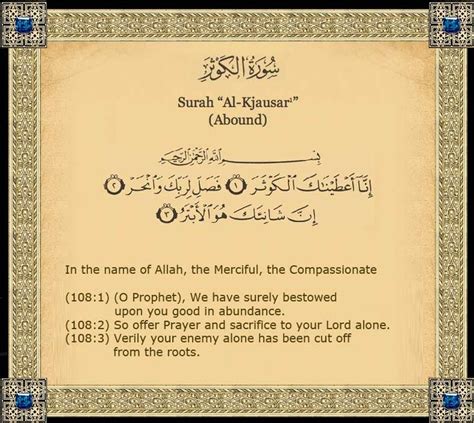 سُورَةُ الكَوْثَرِ
Surah “Al-Kjausar¹”
(Abound)
بِسْمِ اللَّهِ الرَّحْمَٰنِ الرَّحِيمِ
إِنَّا أَعْطَيْنَاكَ الْكَوْثَرَ ﴿١﴾ فَصَلِّ لِرَبِّكَ وَانْحَرْ ﴿٢﴾
إِنَّ شَانِئَكَ هُوَ الْأَبْتَرُ ﴿٣﴾
In the name of Allah, the Merciful, the Compassionate
(108:1) (O Prophet), We have surely bestowed
upon you good in abundance.
(108:2) So offer Prayer and sacrifice to your Lord alone.
(108:3) Verily your enemy alone has been cut off
from the roots.